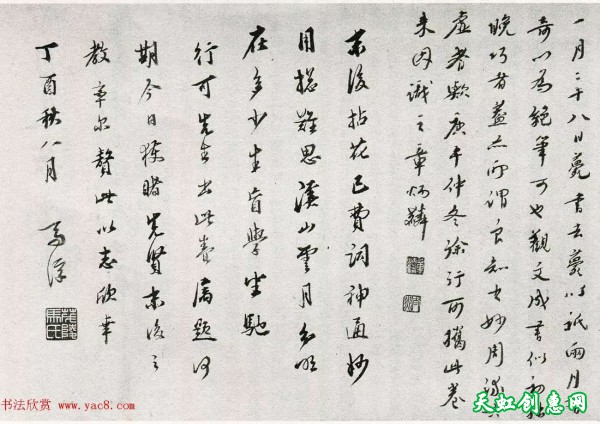 一月二十八日薨書去薨時祇兩月
奇以為絕筆可也觀文成書似初
晚巧者蓋亦所謂良知之妙周流
虛者歟庚午仲冬徐行可攜此卷
來因識之章炳麟
末後拈花已費詞神通妙
用總難思溪山雲月分明
在多少生盲學坐馳
行可先生出此卷屬題何
期今日獲睹先賢末後之
教率爾贅此以志欣幸
丁酉秋八月 馬浮
书法欣赏 www.yac8.com
天虹创意网